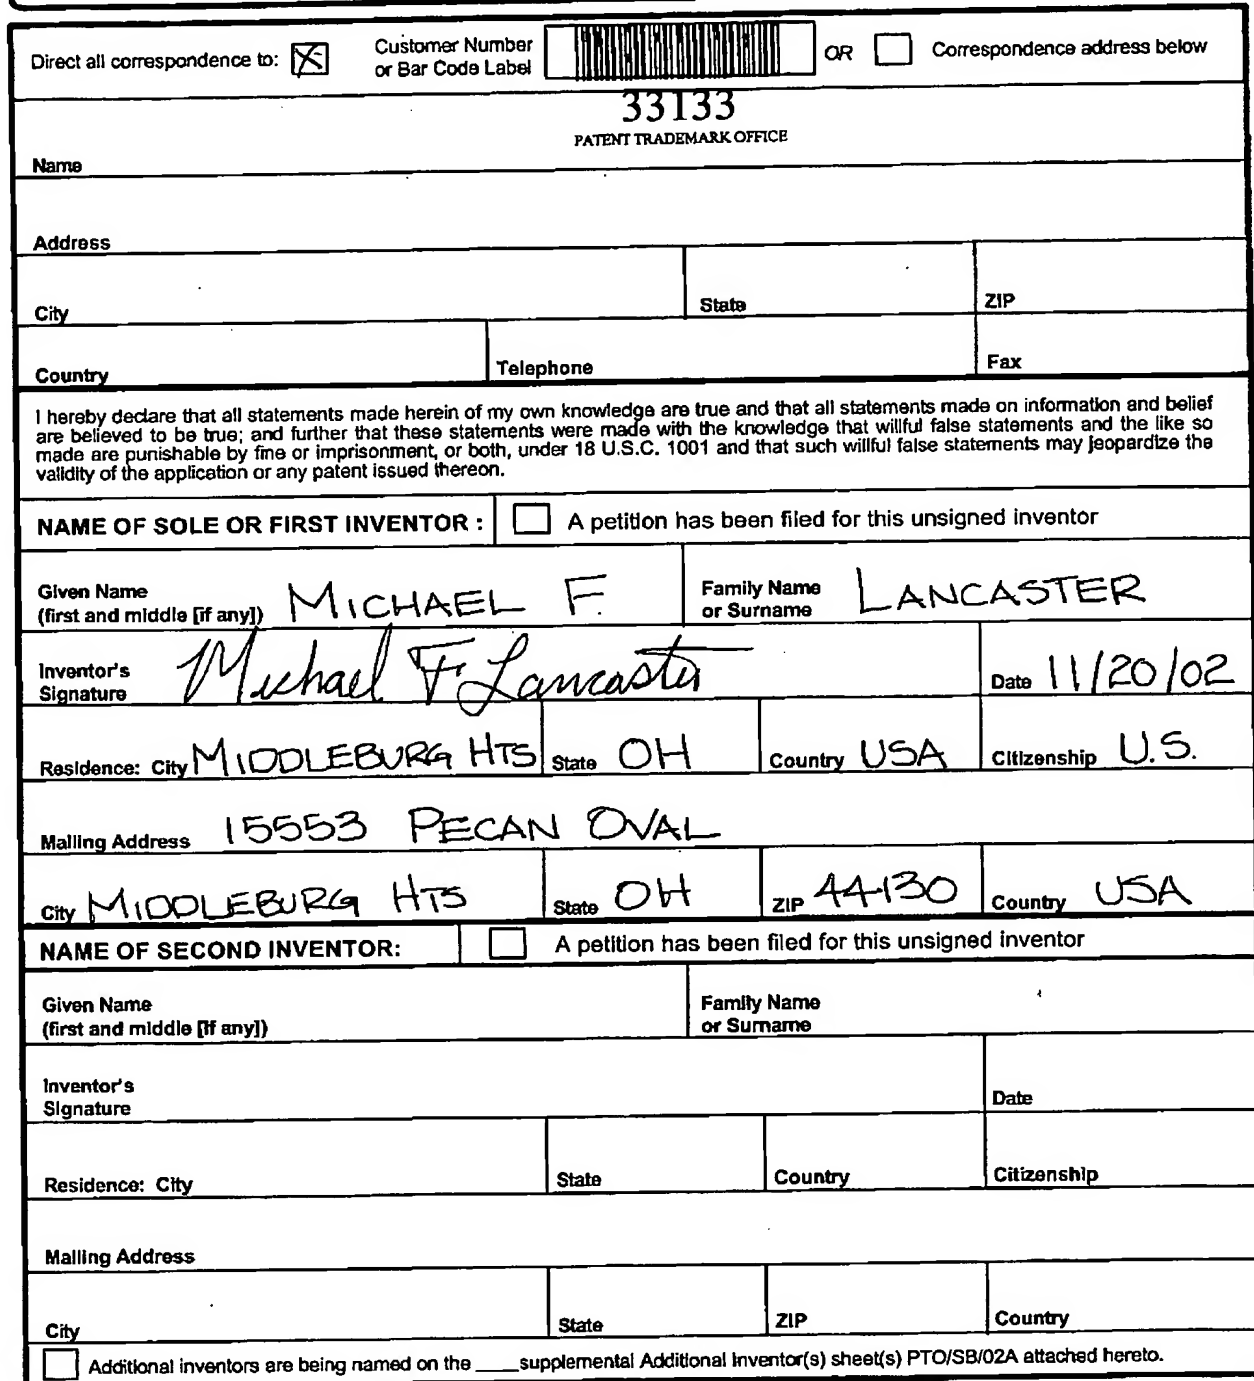 Direct all correspondence to: Customer Number or Bar Code Label OR Correspondence address below
33133
PATENT TRADEMARK OFFICE
Name
Address
City State ZIP
Country Telephone Fax
I hereby declare that all statements made herein of my own knowledge are true and that all statements made on information and belief
are believed to be true; and further that these statements were made with the knowledge that willful false statements and the like so
made are punishable by fine or imprisonment, or both, under 18 U.S.C. 1001 and that such willful false statements may jeopardize the
validity of the application or any patent issued thereon.
NAME OF SOLE OR FIRST INVENTOR : A petition has been filed for this unsigned inventor
Given Name (first and middle [if any]) MICHAEL F. Family Name or Surname LANCASTER
Inventor's Signature Michael F. Lancaster Date 11/20/02
Residence: City MIDDLEBURG HTS State OH Country USA Citizenship U.S.
Mailing Address 15553 PECAN OVAL
City MIDDLEBURG HTS State OH ZIP 44130 Country USA
NAME OF SECOND INVENTOR: A petition has been filed for this unsigned inventor
Given Name (first and middle [if any]) Family Name or Surname
Inventor's Signature Date
Residence: City State Country Citizenship
Mailing Address
City State ZIP Country
Additional inventors are being named on the ____supplemental Additional Inventor(s) sheet(s) PTO/SB/02A attached hereto.